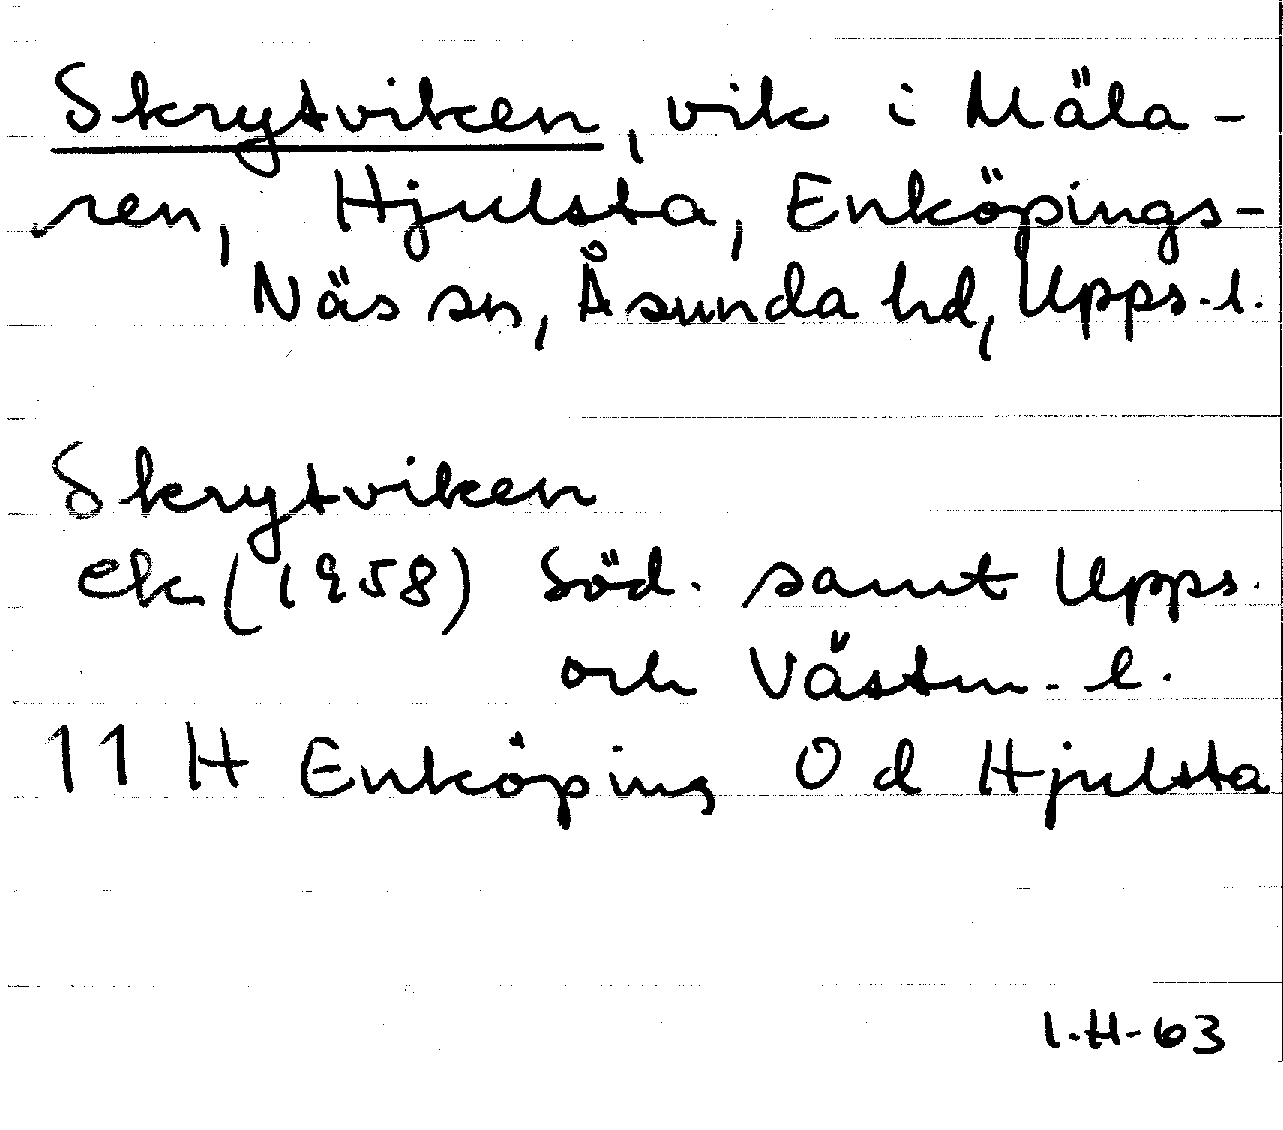 Skrytviken, vik i Mäla-
ren, Hjulsta, Enköpings-
Näs sn, Åsunda hd, Upps. l.
Skrytviken
ek (1958) Söd. samt Upps.
och Västm. l.
11 H Enköping 0 d Hjulsta
I.H-63